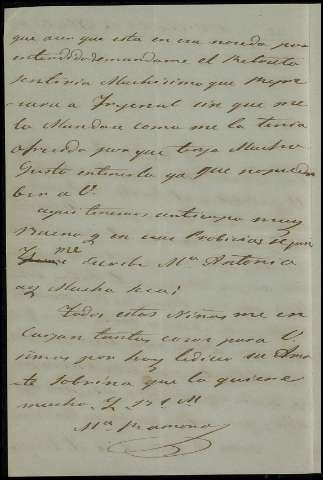 que aun que esta en esa no se da por
entendido de mandarme el Retrato
sentiria Muchisimo que Regre
-sara a Imperial sin que me
lo Mandara como me lo tenia
ofrecido por que tengo Mucho
Gusto en tenerlo ya que no puedo
ber a V.
aqui tenemos un tiempo muy
Bueno y en esas Probicias segun
me Escribe Mª Antonia
ay Mucha seca;
Todos estas Niñas me en
Cargan tantas cosas para V.
simas por hoy su Ama
-te sobrina que lo quiere
mucho. Y B S M
Mª Ramona